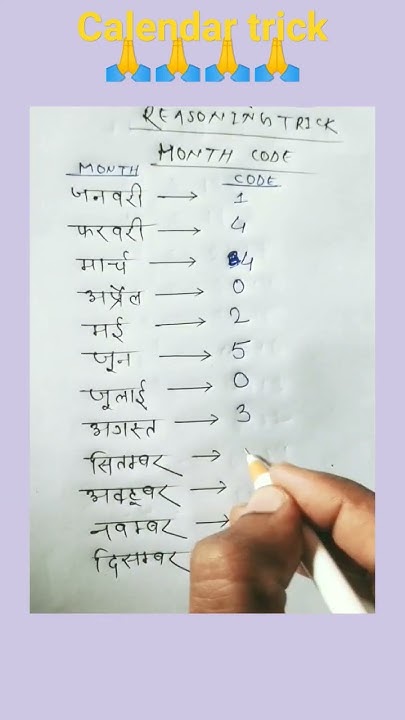 Calendar trick
🙏🙏🙏🙏
REASONING TRICK
MONTH CODE
MONTH CODE
जनवरी → 1
फरवरी → 4
मार्च → 4
अप्रैल → 0
मई → 2
जून → 5
जूलाई → 0
अगस्त → 3
सितम्बर →
अक्टूबर →
नवम्बर →
दिसम्बर